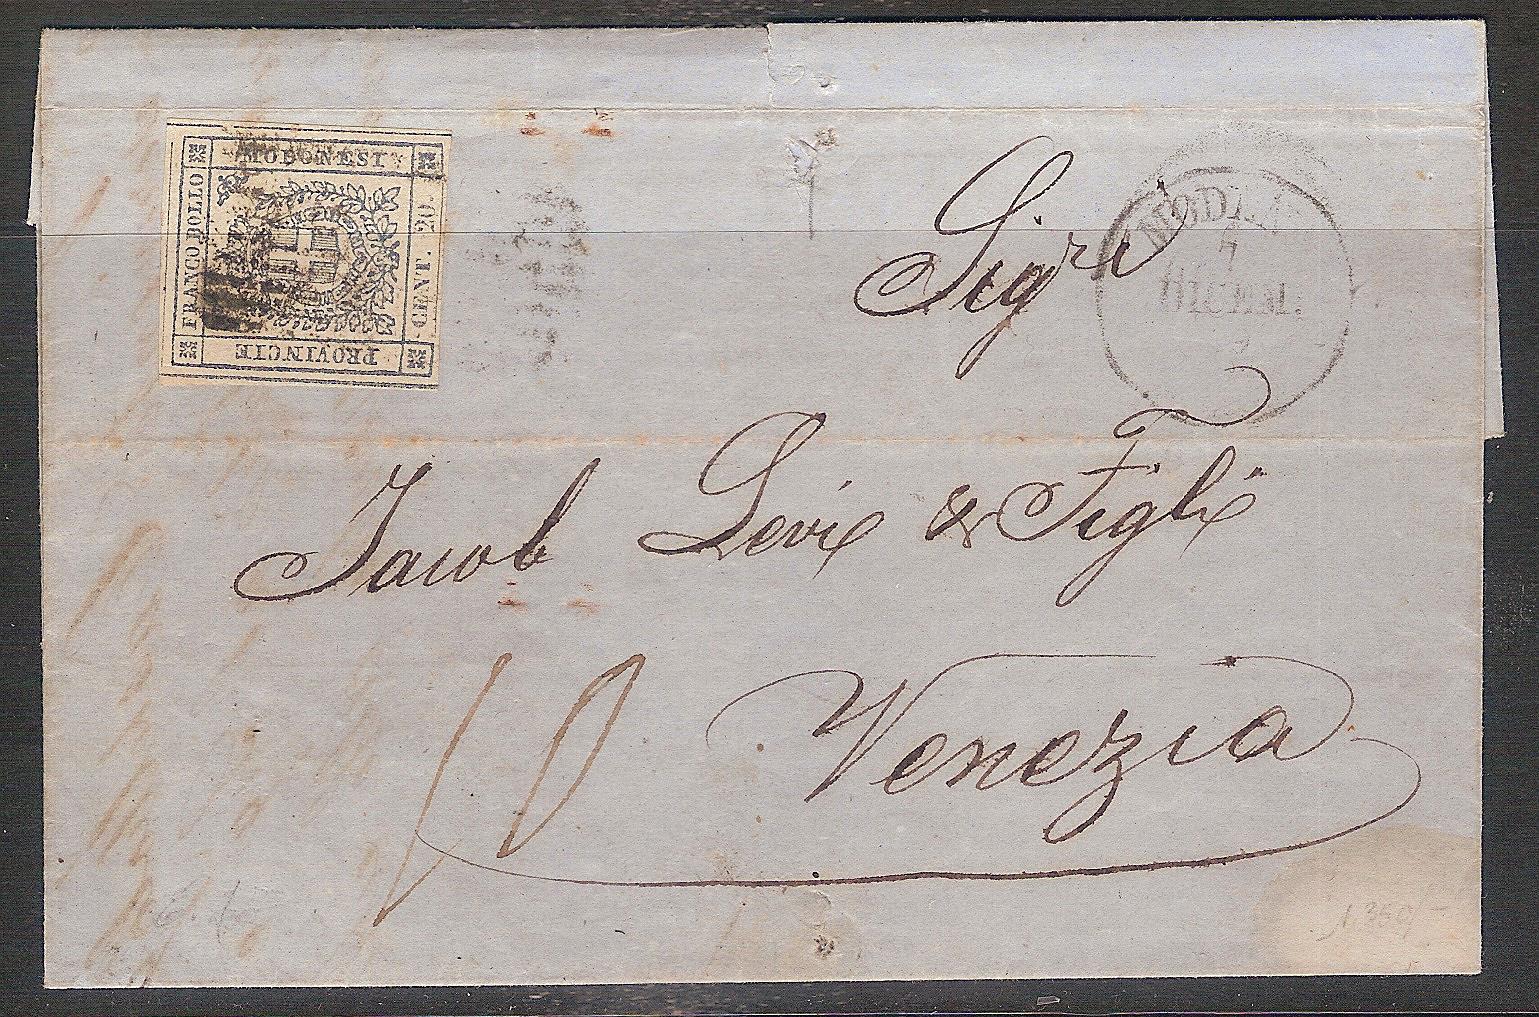 MODONESI
FRANCO BOLLO
CENT. 20.
PROVINCIE
MODENA
7
DICEM.
Sigri
Jacob Levi & Figli
10
Venezia